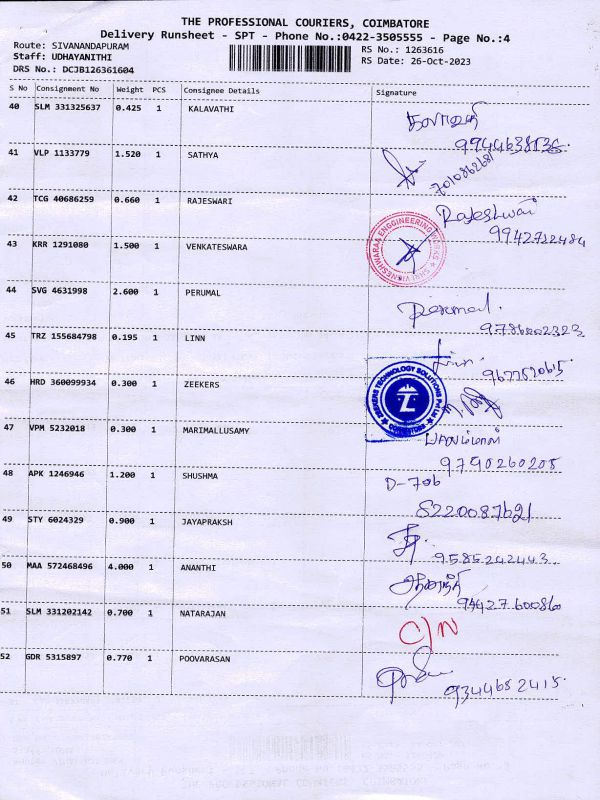 THE PROFESSIONAL COURIERS, COIMBATORE
Delivery Runsheet - SPT - Phone No.:0422-3505555 - Page No.:4
Route: SIVANANDAPURAM
RS No.: 1263616
Staff: UDHAYANITHI
RS Date: 26-Oct-2023
DRS No.: DCJB126361604
S No Consignment No Weight PCS Consignee Details Signature
40 SLM 331325637 0.425 1 KALAVATHI
41 VLP 1133779 1.520 1 SATHYA
7010862681
42 TCG 40686259 0.660 1 RAJESWARI Rajeshwari
9942722484
43 KRR 1291080 1.500 1 VENKATESWARA
SHRI VIGNESHWARAA ENGGINEERING WORKS
44 SVG 4631998 2.600 1 PERUMAL
9786002323
45 TRZ 155684798 0.195 1 LINN
46 HRD 360099934 0.300 1 ZEEKERS
ZEEKERS TECHNOLOGY SOLUTIONS Pvt Ltd
47 VPM 5232018 0.300 1 MARIMALLUSAMY
9790260205
48 APK 1246946 1.200 1 SHUSHMA D-706
8220087621
49 STY 6024329 0.900 1 JAYAPRAKSH
9585242443
50 MAA 572468496 4.000 1 ANANTHI ஆனந்தி
94427600860
51 SLM 331202142 0.700 1 NATARAJAN C/N
52 GDR 5315897 0.770 1 POOVARASAN
9344652415